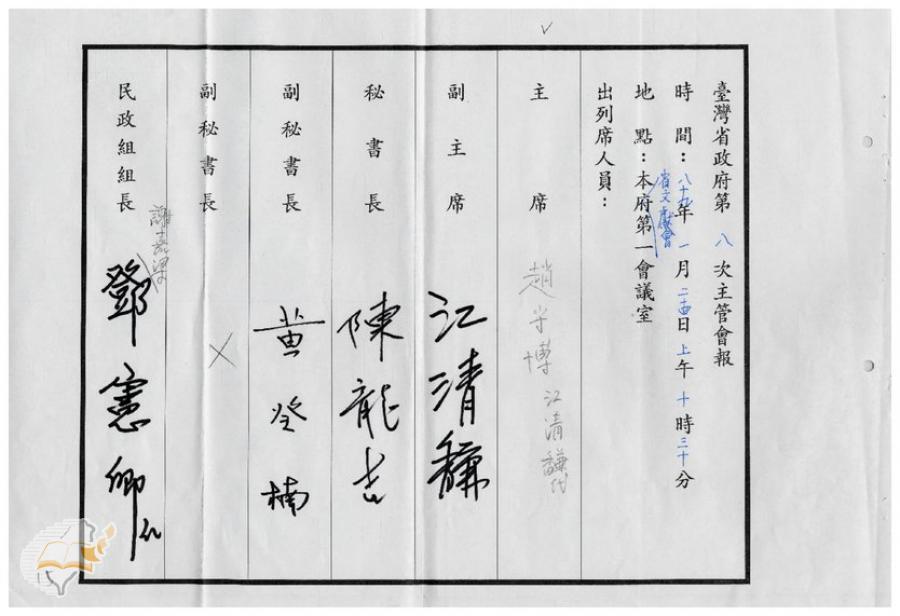 臺灣省政府第八次主管會報
時間：八十九年一月二十四日上午十時三十分
地點：本府第一會議室
省文獻會
出列席人員：
主席 趙守博 江清馦代
副主席 江清馦
秘書長 陳龍吉
副秘書長 黃癸楠
副秘書長 ×
民政組組長 鄧憲卿代
謝嘉梁